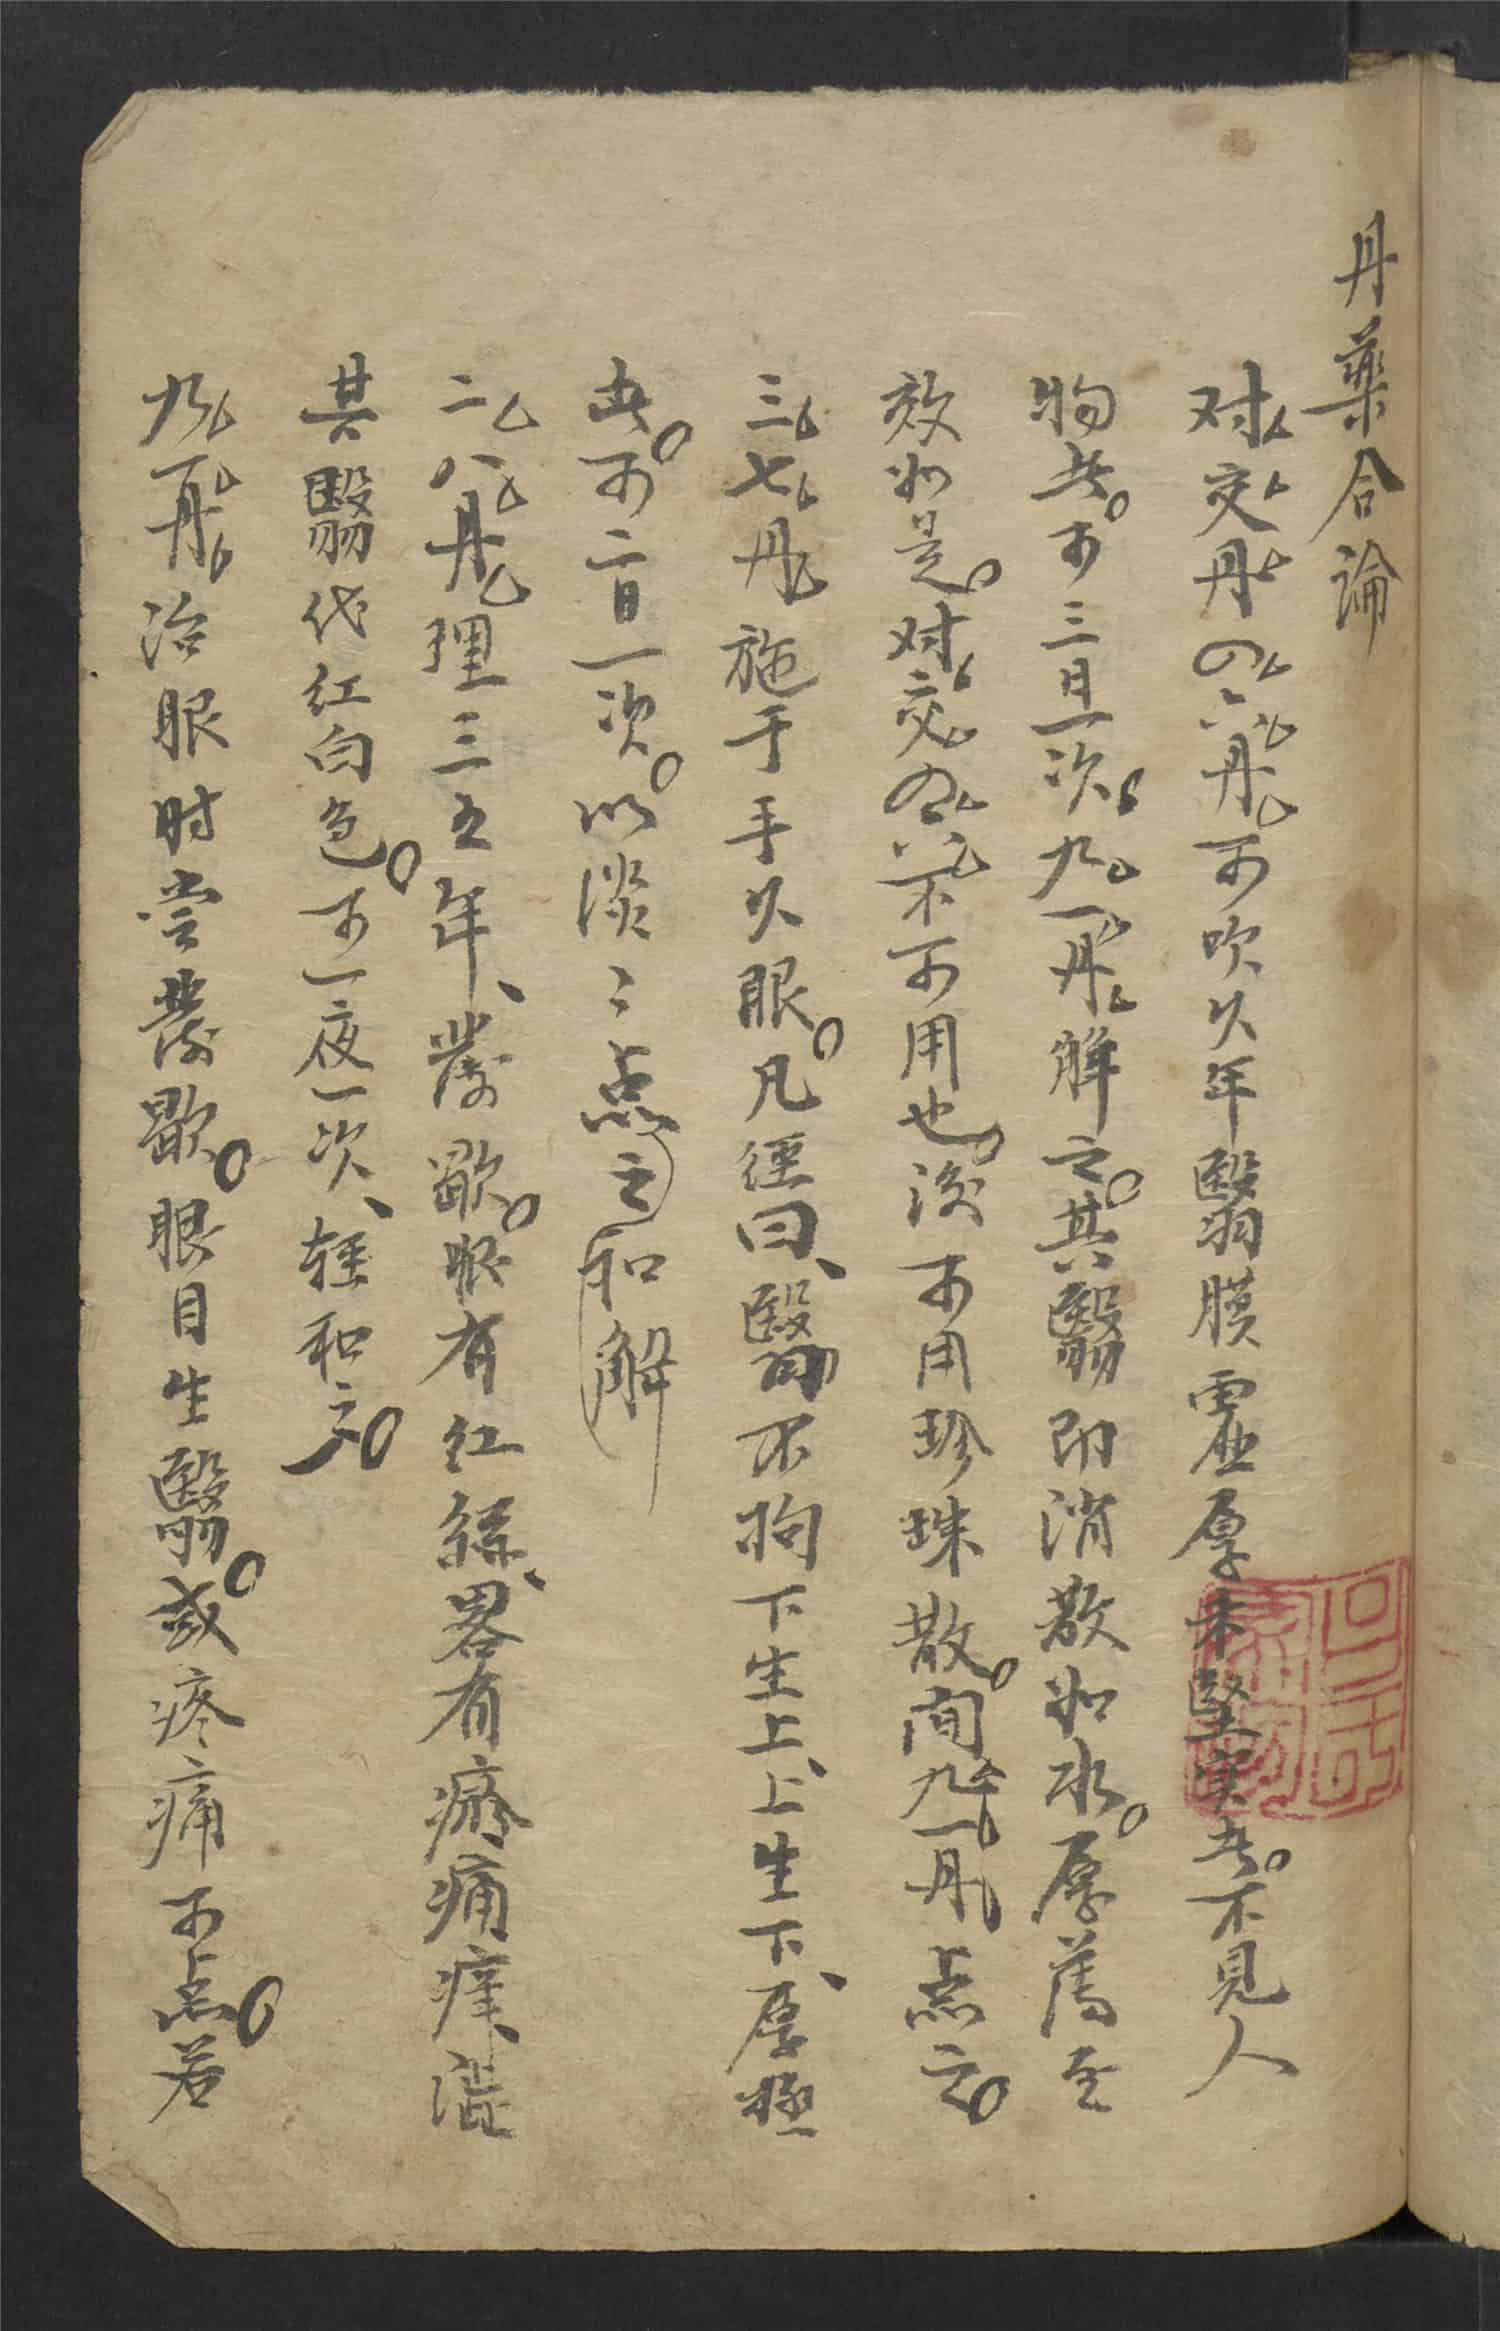 丹藥合論
对交丹四六丹可吹久年翳膜䨓厚未堅实者不見人
物者可三日一次九一丹解之其翳即消散如水厚薄至
效如是对交四六不可用也後可用珍珠散间九一丹点之
三七丹施于手久眼凡經曰翳不拘下生上上生下厚極
者可二日一次以淡〻点之和解
二八丹理三五年發歇眼有紅絲畧有疼痛痒混
其翳代红白色可一夜一次轻和之
九一丹治眼时嘗發歇眼目生翳或疼痛可点若